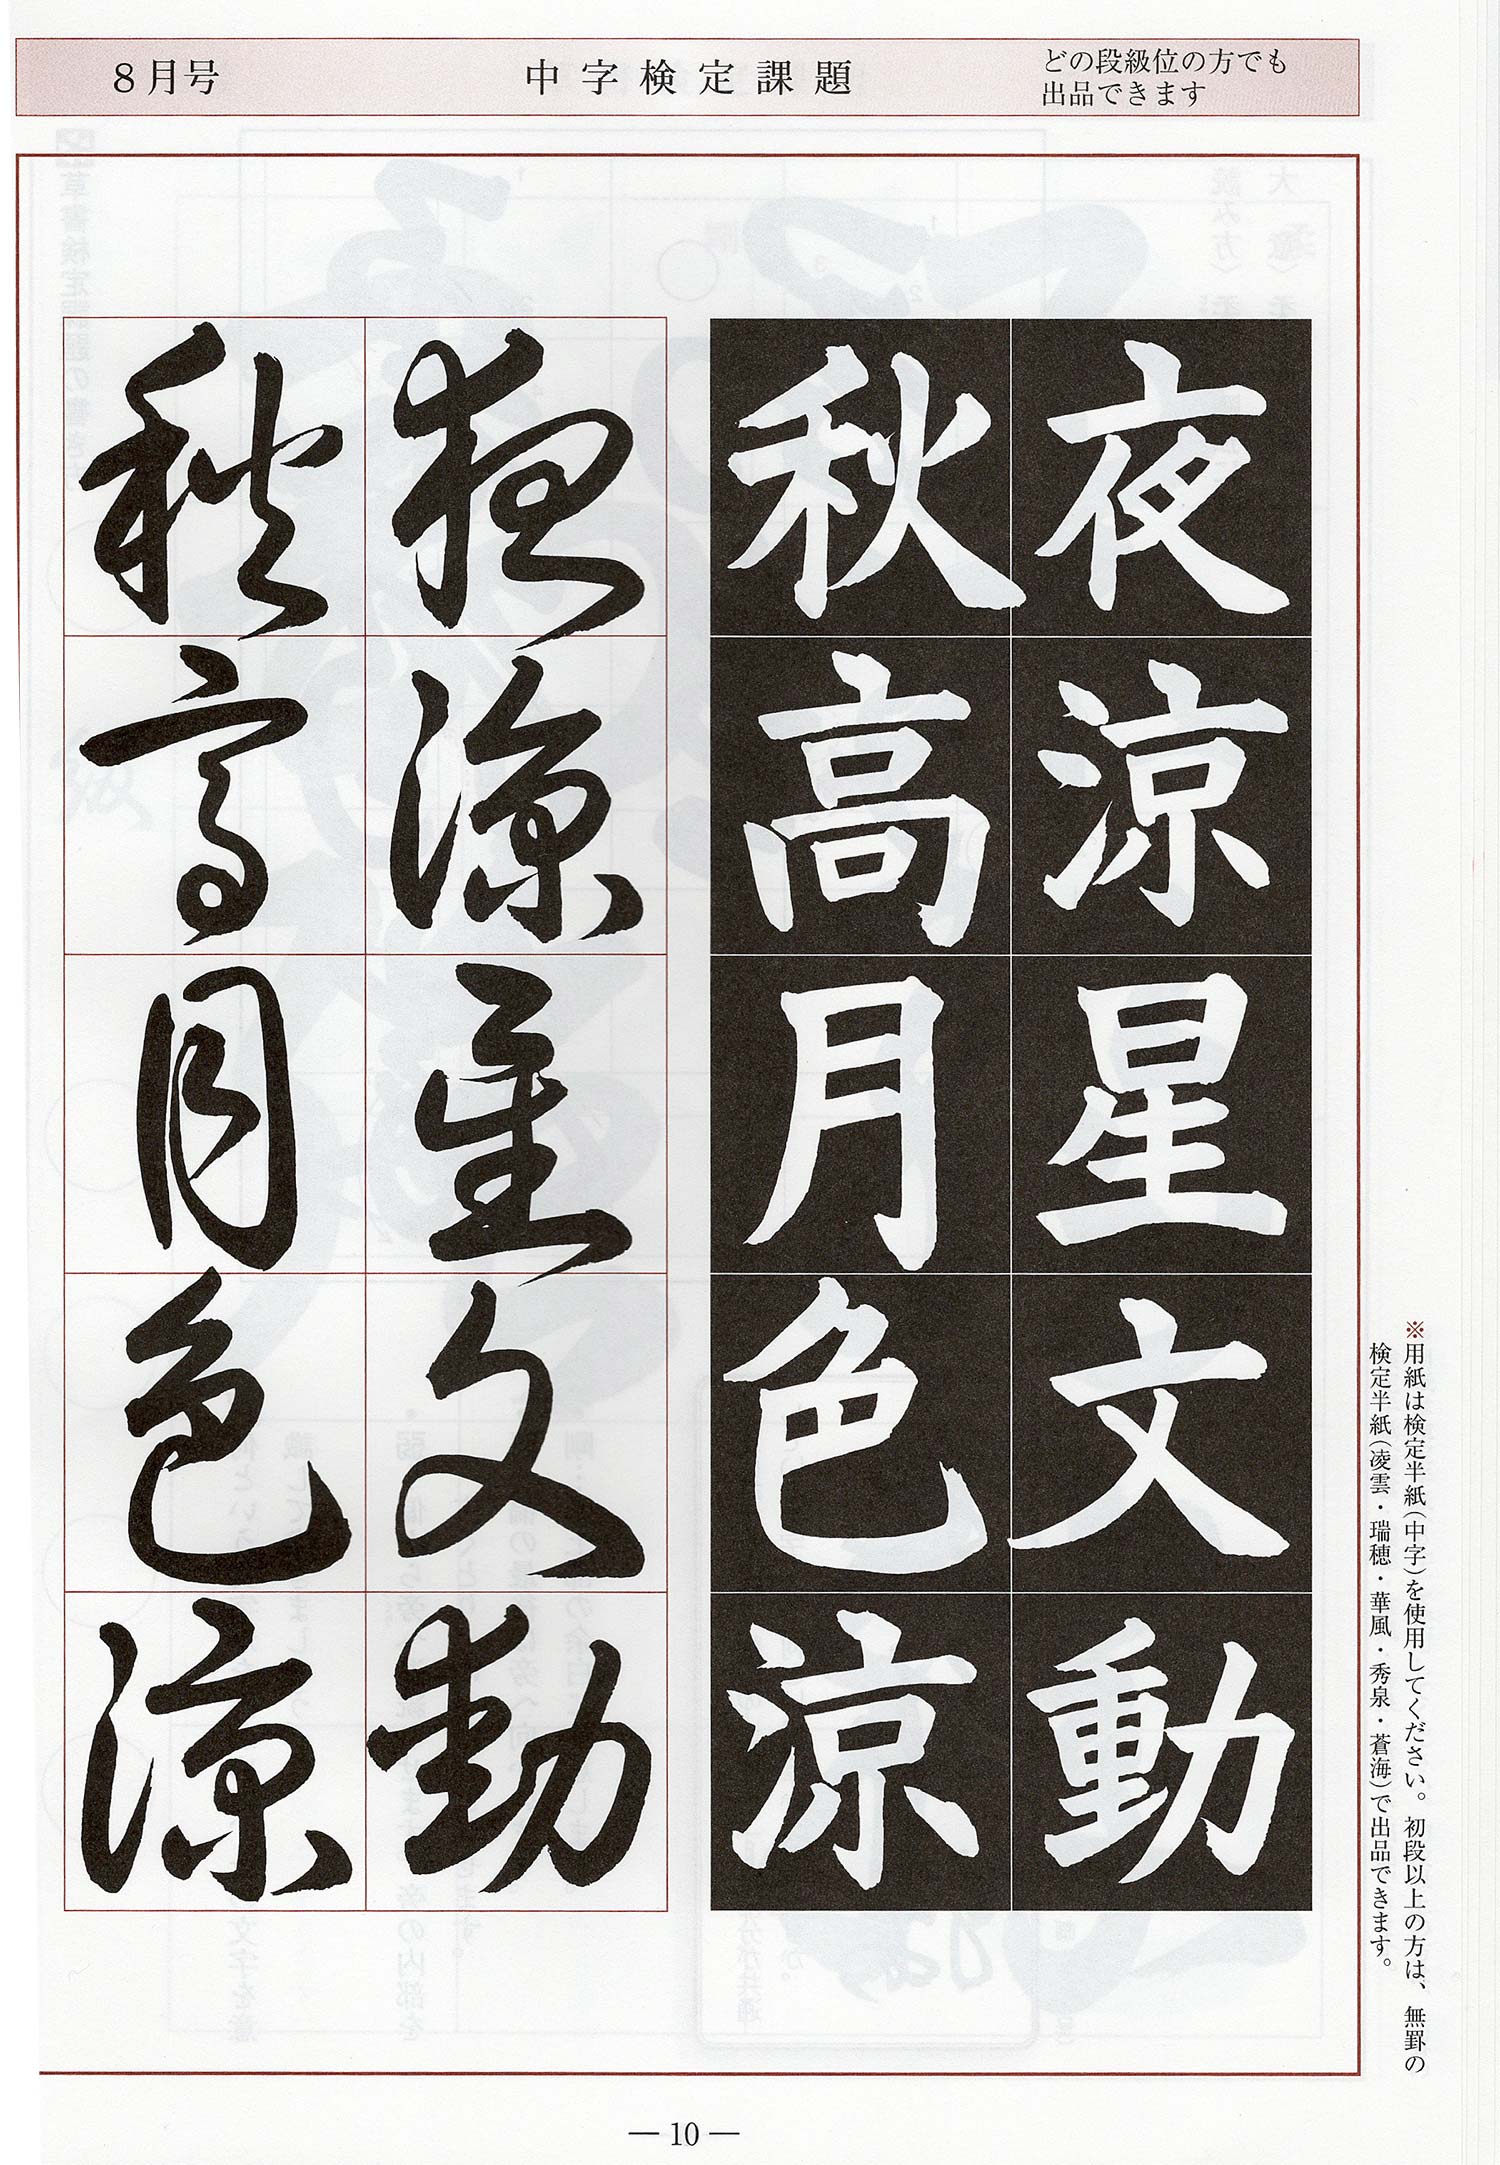 8月号
中字検定課題
どの段級位の方でも
出品できます
夜涼星文動
秋高月色涼
夜涼星文動
秋高月色涼
※用紙は検定半紙(中字)を使用してください。初段以上の方は、無罫の
検定半紙(凌雲・瑞穂・華風・秀泉・蒼海)で出品できます。
— 10 —